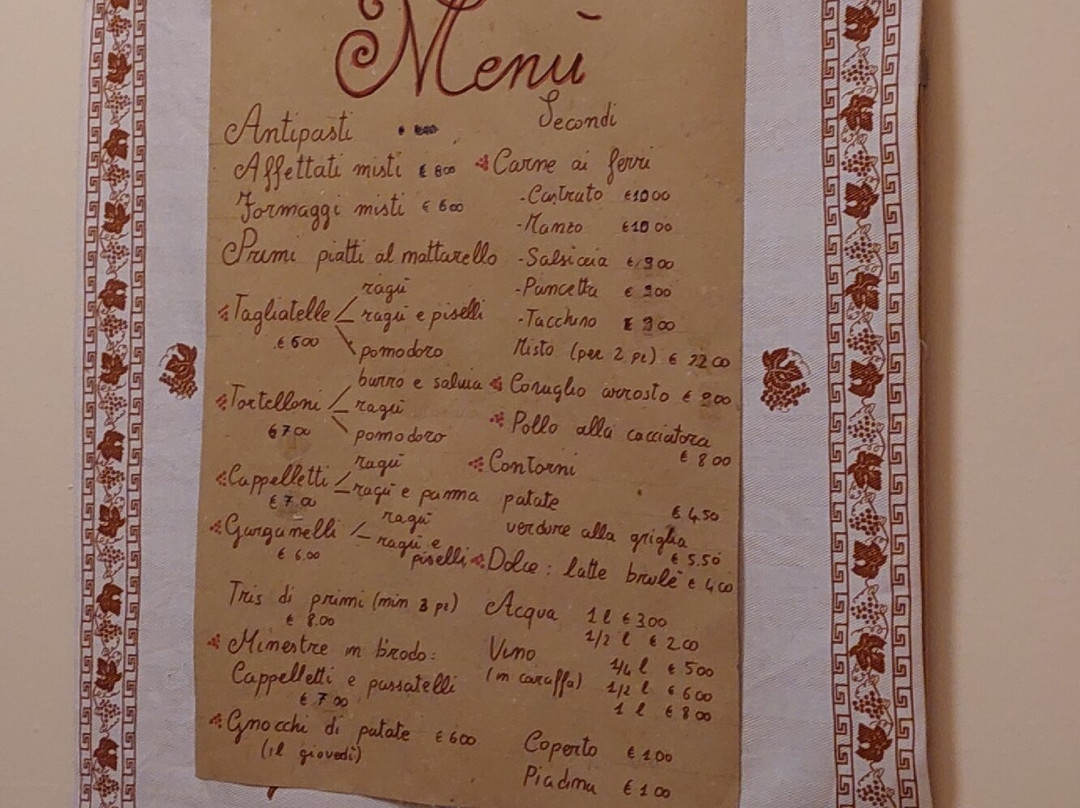 Menù
Antipasti
Affettati misti € 8 00
Formaggi misti € 6 00
Primi piatti al mattarello
Tagliatelle ragù
ragù e piselli
pomodoro
€ 6 00
Tortelloni burro e salvia
ragù
pomodoro
€ 7 00
Cappelletti ragù
ragù e panna
€ 7.00
Garganelli ragù
ragù e
piselli
€ 6.00
Tris di primi (min 3 pe)
€ 8.00
Minestre in brodo:
Cappelletti e passatelli
€ 7 00
Gnocchi di patate € 6 00
(il giovedì)
Secondi
Carne ai ferri
- Castrato € 10 00
- Manzo € 10 00
- Salsiccia € 9 00
- Pancetta € 9 00
- Tacchino € 9 00
Misto (per 2 pe) € 22 00
Coniglio arrosto € 9 00
Pollo alla cacciatora
€ 8 00
Contorni
patate
€ 4,50
verdure alla griglia
€ 5.50
Dolce: latte brulè € 4 00
Acqua 1 l € 3 00
1/2 l € 2.00
Vino 1/4 l € 5 00
(in caraffa) 1/2 l € 6 00
1 l € 8 00
Coperto € 1 00
Piadina € 1 00